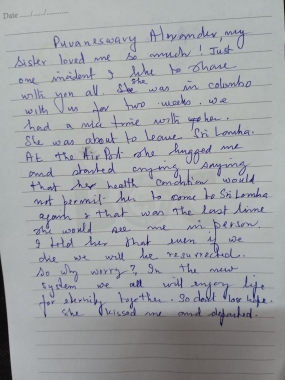 Date ..../..../........
Puvaneswary Alexander, my
sister loved me so much! Just
one incident I like to share
with you all. She was in colombo
with us for two weeks. we
had a nice time with her.
She was about to leave Sri Lanka.
At the Air Port she hugged me
and started crying saying
that her health condition would
not permit her to come to Sri Lanka
again & that was the last time
she would see me in person
I told her that even if we
die we will be resurrected.
so why worry? In the new
system we all will enjoy life
for eternity together. So dont lose hope.
She kissed me and departed.